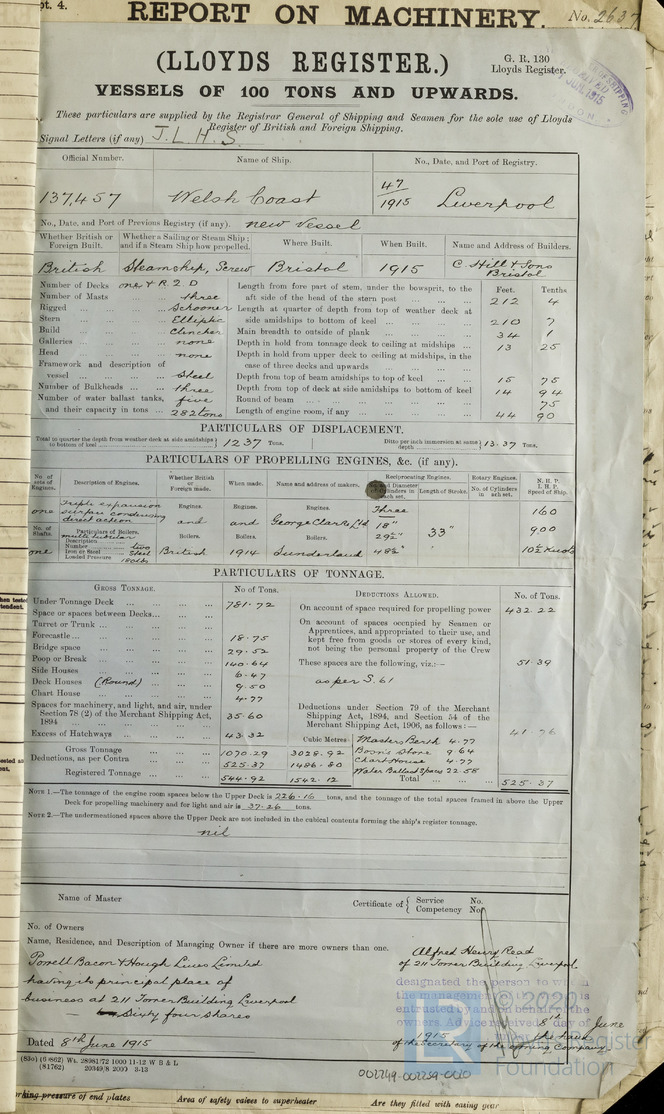 pt. 4.
REPORT ON MACHINERY.
No. 2637
(LLOYDS REGISTER.)
G. R. 130
Lloyds Register.
VESSELS OF 100 TONS AND UPWARDS.
These particulars are supplied by the Registrar General of Shipping and Seamen for the sole use of Lloyds
Register of British and Foreign Shipping.
Signal Letters (if any) J. L. H. S.
Official Number. Name of Ship. No., Date, and Port of Registry.
137,457 Welsh Coast 47/1915 Liverpool
No., Date, and Port of Previous Registry (if any). new vessel
Whether British or Foreign Built. Whether a Sailing or Steam Ship; and if a Steam Ship how propelled. Where Built. When Built. Name and Address of Builders.
British Steamship, Screw Bristol 1915 C. Hill & Sons Bristol
Number of Decks one & R. Q. D
Number of Masts three
Rigged Schooner
Stern Elliptic
Build Clincher
Galleries none
Head none
Framework and description of
vessel Steel
Number of Bulkheads three
Number of water ballast tanks, five
and their capacity in tons 282 tons
Feet. Tenths
Length from fore part of stem, under the bowsprit, to the
aft side of the head of the stern post 212 4
Length at quarter of depth from top of weather deck at
side amidships to bottom of keel 210 7
Main breadth to outside of plank 34 1
Depth in hold from tonnage deck to ceiling at midships 13 25
Depth in hold from upper deck to ceiling at midships, in the
case of three decks and upwards
Depth from top of beam amidships to top of keel 15 75
Depth from top of deck at side amidships to bottom of keel 14 94
Round of beam 75
Length of engine room, if any 44 90
PARTICULARS OF DISPLACEMENT.
Total to quarter the depth from weather deck at side amidships to bottom of keel 1237 Tons.
Ditto per inch immersion at same depth 13.37 Tons.
PARTICULARS OF PROPELLING ENGINES, &c. (if any).
No. of sets of Engines. Description of Engines. Whether British or Foreign made. When made. Name and address of makers. Reciprocating Engines. Rotary Engines. N. H. P. I. H. P. Speed of Ship.
Length of Stroke. No. of Cylinders in each set.
one Triple expansion
surface condensing
direct action
Engines. Engines. Engines. Three 160
and and George Clark Ltd 18" 33" 900
No. of Shafts. Particulars of Boilers. Boilers. Boilers. Boilers. 29½"
Description multi tubular
Number two
one Iron or Steel Steel British 1914 Sunderland 48½" 10½ Knots
Loaded Pressure 180 lbs
PARTICULARS OF TONNAGE.
GROSS TONNAGE. No of Tons.
Under Tonnage Deck 781.72
Space or spaces between Decks
Turret or Trunk
Forecastle 18.75
Bridge space 29.52
Poop or Break 140.64
Side Houses 6.47
Deck Houses (Round) 9.50
Chart House 4.77
Spaces for machinery, and light, and air, under
Section 78 (2) of the Merchant Shipping Act,
1894 35.60
Excess of Hatchways 43.32
Cubic Metres
Gross Tonnage 1070.29 3028.92
Deductions, as per Contra 525.37 1486.80
Registered Tonnage 544.92 1542.12
DEDUCTIONS ALLOWED. No. of Tons.
On account of space required for propelling power 432.22
On account of spaces occupied by Seamen or
Apprentices, and appropriated to their use, and
kept free from goods or stores of every kind,
not being the personal property of the Crew
These spaces are the following, viz.:— 51.39
as per S. 61
Deductions under Section 79 of the Merchant
Shipping Act, 1894, and Section 54 of the
Merchant Shipping Act, 1906, as follows:—
41.76
Masters Berth 4.77
Bosn's Store 9.64
Chart House 4.77
Water Ballast Spaces 22.58
Total 525.37
NOTE 1.—The tonnage of the engine room spaces below the Upper Deck is 226.16 tons, and the tonnage of the total spaces framed in above the Upper
Deck for propelling machinery and for light and air is 37.26 tons.
NOTE 2.—The undermentioned spaces above the Upper Deck are not included in the cubical contents forming the ship's register tonnage.
nil
Name of Master
Certificate of { Service No.
Competency No.
No. of Owners
Name, Residence, and Description of Managing Owner if there are more owners than one.
Powell Bacon & Hough Lines Limited
having its principal place of
business at 211 Tower Building Liverpool
Sixty four shares
Alfred Henry Read
of 211 Tower Building Liverpool
designated the person to
entrusted by
owners. Advice received 8th day of June
1915 the hand
of the Secretary of the owning Company
Dated 8th June 1915
(81762) 20349/8 2000 3-13
© 2020
Lloyd's Register
Foundation
002249-002259-0010
working pressure of end plates
Area of safety valves to superheater
Are they fitted with easing gear